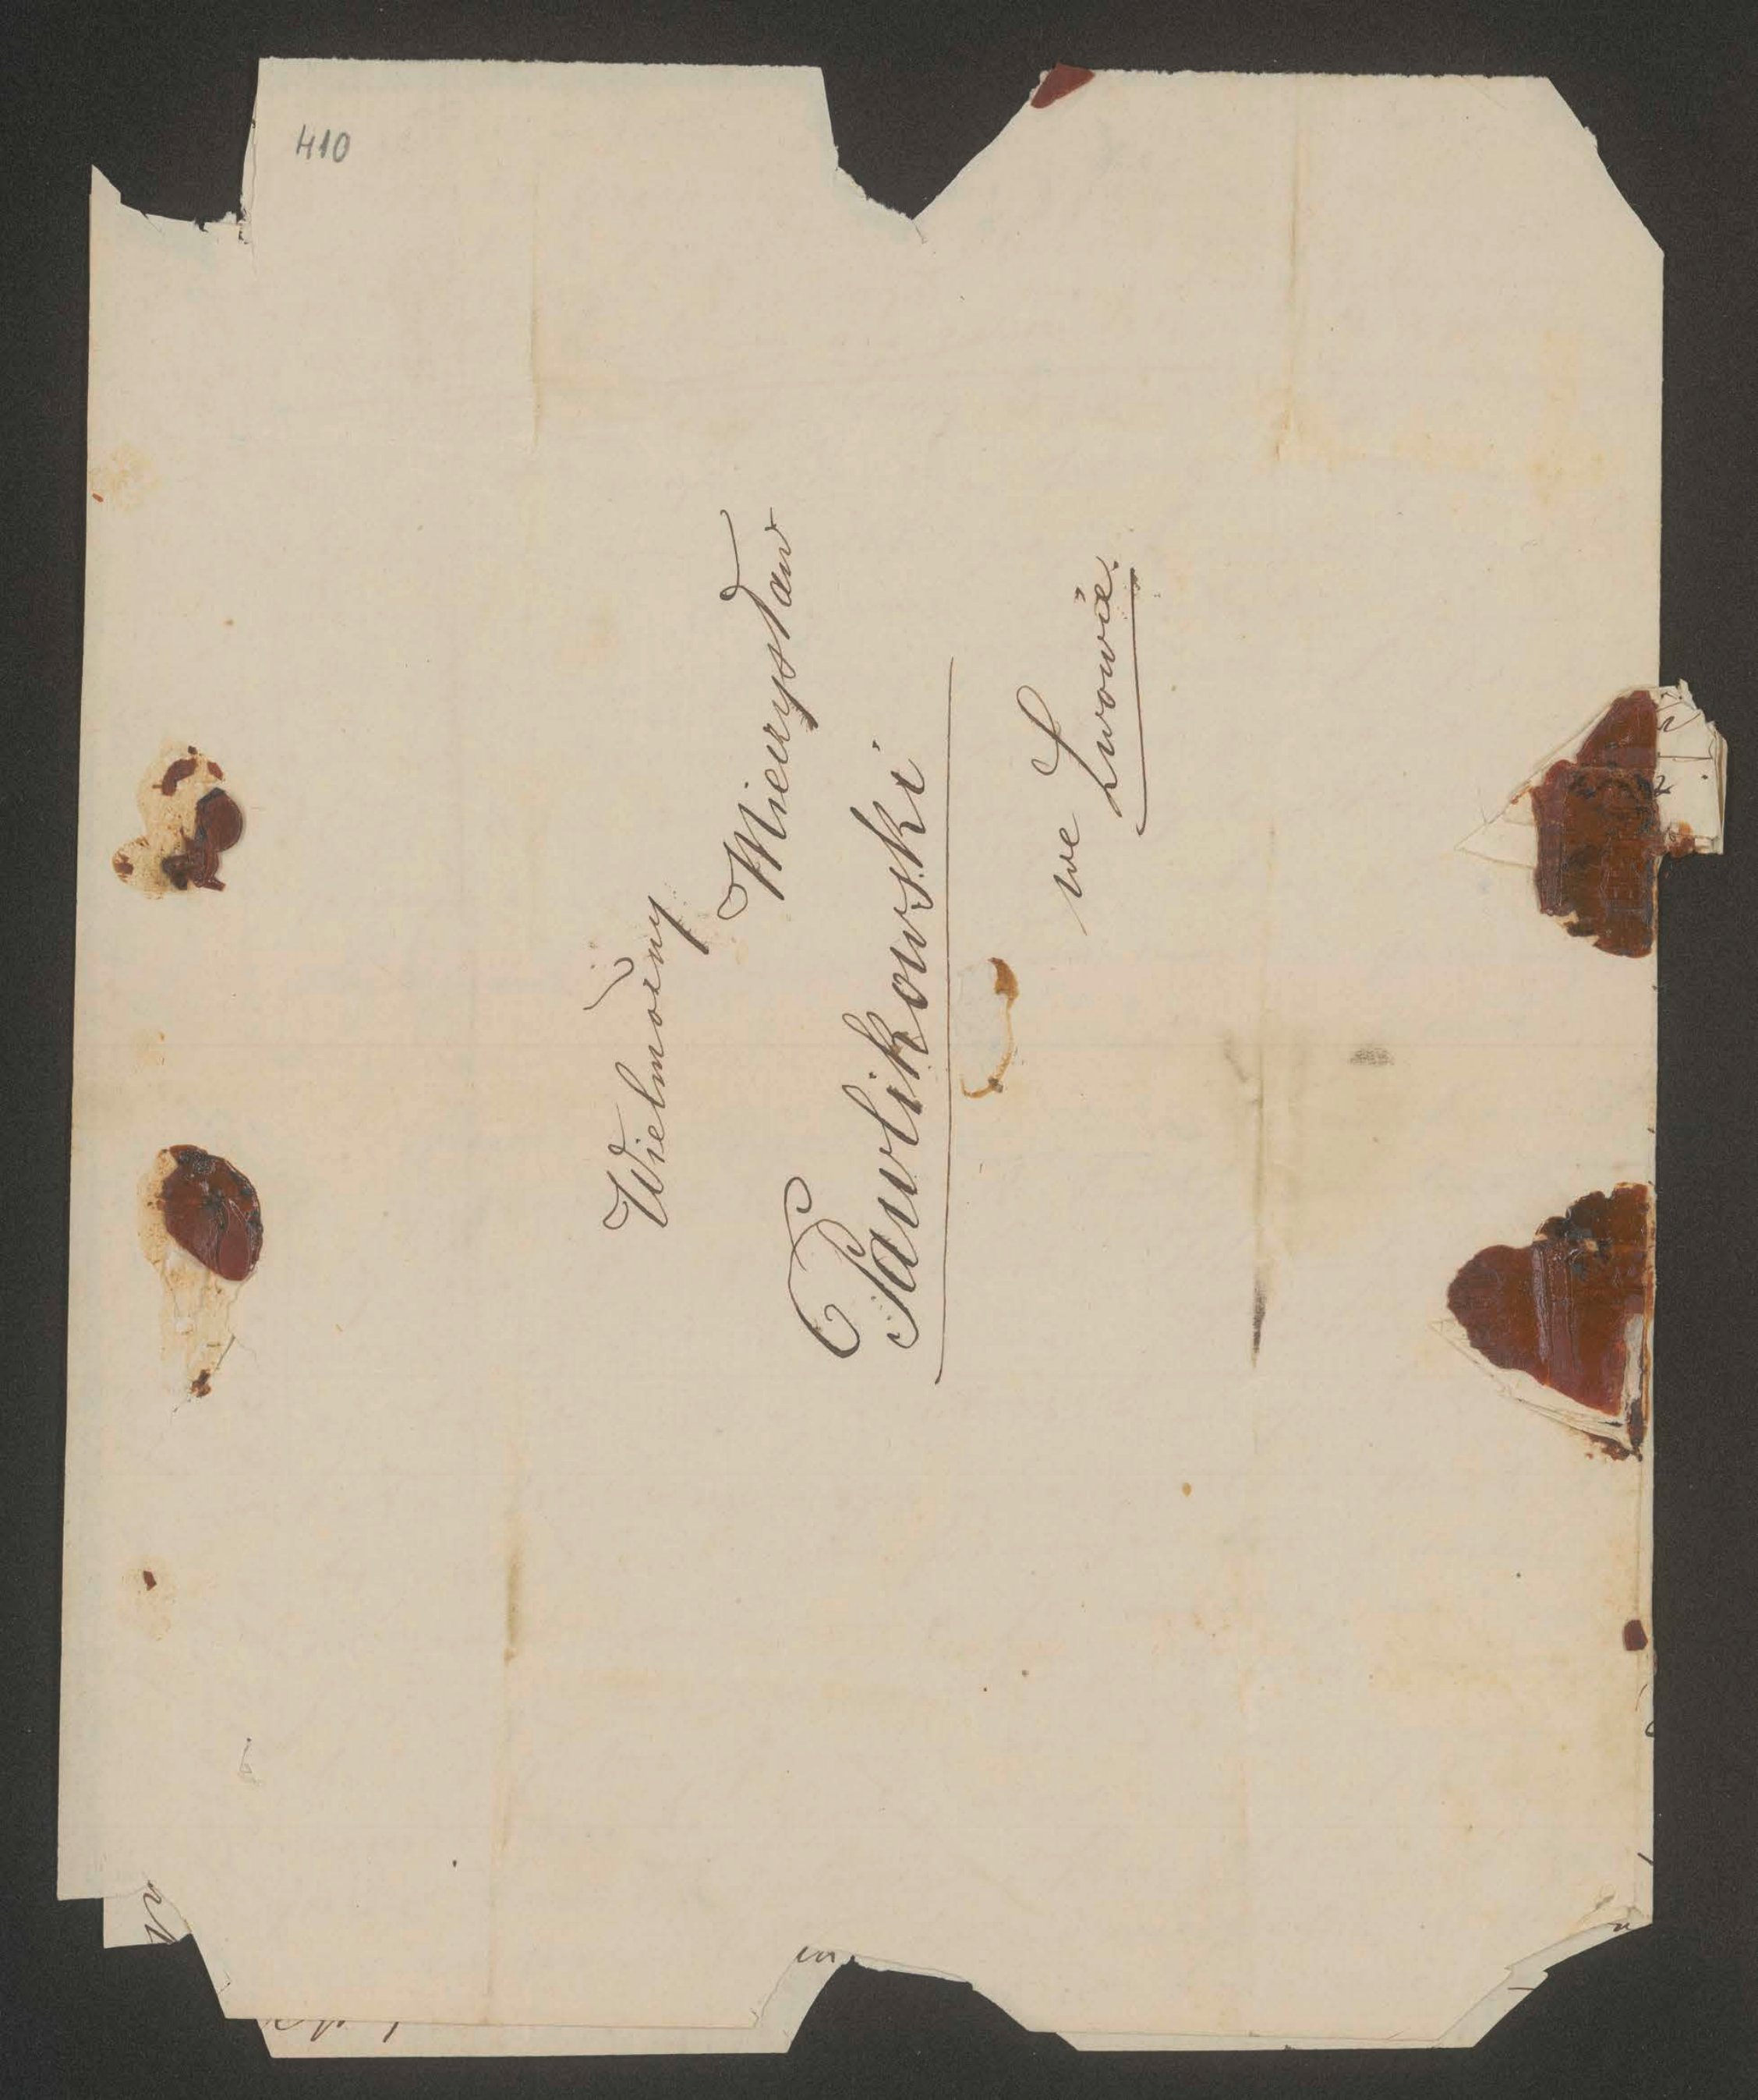 410
Wielmożny
Mieczysław
Pawlikowski
we Lwowie.